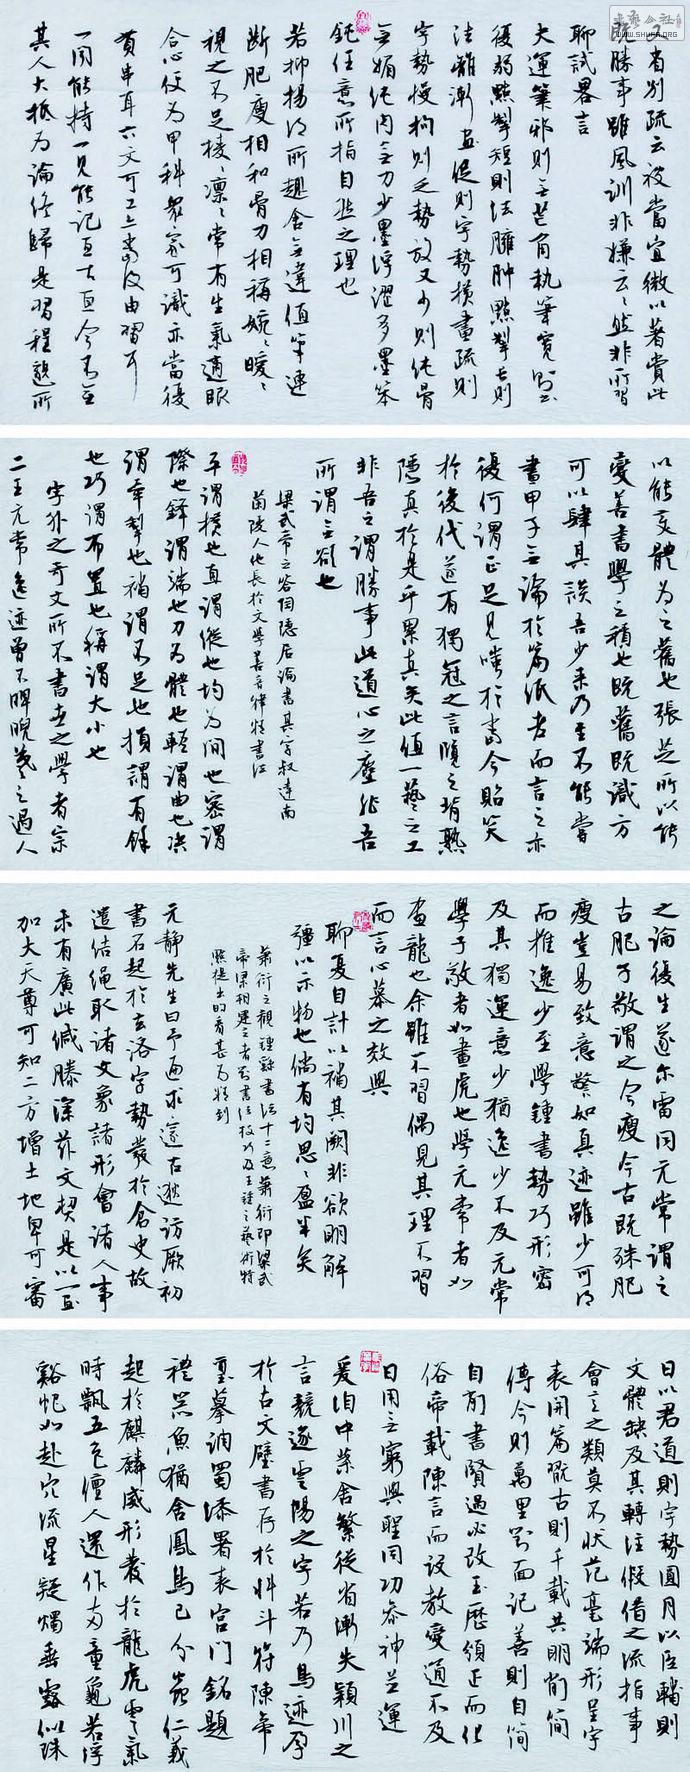 又省别疏云故當宜微以著賞此
既勝事雖風訓非嫌云云然非所習
聊試略言
夫運筆邪則無芒角執筆寬則書
緩弱點掣短則法臃腫點掣長則
法離澌畫促則字勢橫畫疏則
字勢慢拘則乏勢放又少則純骨
無媚純肉無力少墨浮澀多墨笨
鈍任意所指自然之理也
若抑揚得所趣舍無違值筆連
斷肥瘦相和骨力相稱婉婉曖曖
視之不足棱棱凜凜常有生氣適眼
合心便為甲科衆家可識亦當復
貫串耳六文可工亦當復由習耳
一聞能持一見能記亙古亙今不無
其人大抵為論終歸是習程邈所
以能變體為之舊也張芝所以能
愛善書學之積也既舊既識方
可以肆其談吾少來乃至不能嘗
書甲子無論於篇紙老而言之亦
復何謂正足見嗤於當今貽笑
於後代遂有獨冠之言覽之背熱
隱真於是乎累真矣此值一藝之工
非吾之謂勝事此道心之塵非吾
所謂無欲也
梁武帝之答陶隱居論書其字叔達南
蘭陵人他長於文學善音律精書法
平謂橫也直謂縱也均為間也密謂
際也鋒謂端也力為體也輕謂曲也決
謂牽掣也補謂不足也損謂有餘
也巧謂布置也稱謂大小也
字外之奇文所不書世之學者宗
二王元常逸迹曾不睥睨羲之過人
之論後生遂爾雷同元常謂之
古肥子敬謂之今瘦今古既殊肥
瘦豈易致意鋻如真迹雖少可得
而推逸少至學鍾書勢巧形密
及其獨運意少猶逸少不及元常
學子敬者如畫虎也學元常者如
畫龍也余雖不習偶見其理不習
而言心慕之效興
聊复自計以補其闕非欲明解
彊以示物也倘有均思思盈半矣
蕭衍之觀鍾繇書法十二意蕭衍即梁武
帝梁朝建立者對書法技巧及王鍾之藝術特
點提出的看甚為精到
元靜先生曰予遍求邃古逖訪厥初
書石起於玄洛字勢發於倉史故
遺結繩取諸文象諸形會諸人事
未有廣此緘縢深茲文契是以一畫
加大天尊可知二方增土地卑可審
日以君道則字勢圓月以臣輔則
文體缺及其轉注假借之流指事
會意之類莫不狀范毫端形呈字
表開篇玩古則千載共明削簡
傳今則萬里對面記善則自簡
自削書賢過必改玉歷頒正而化
俗帝載陳言而設教變通不及
日用無窮與聖同功參神並運
爰洎中葉舍繁從省漸失穎川之
言競逐雲陽之字若乃鳥迹孕
於古文壁書存於科斗符陳帝
璽摹調蜀漆署表宮門銘題
禮器魚猶舍鳳鳥已分蟲仁義
起於麒麟威形發於龍虎雲氣
時飄五色僊人還作兩童龜若浮
谿蛇如赴穴流星疑燭垂露似珠
書藝公社
WWW.SHUFA.ORG